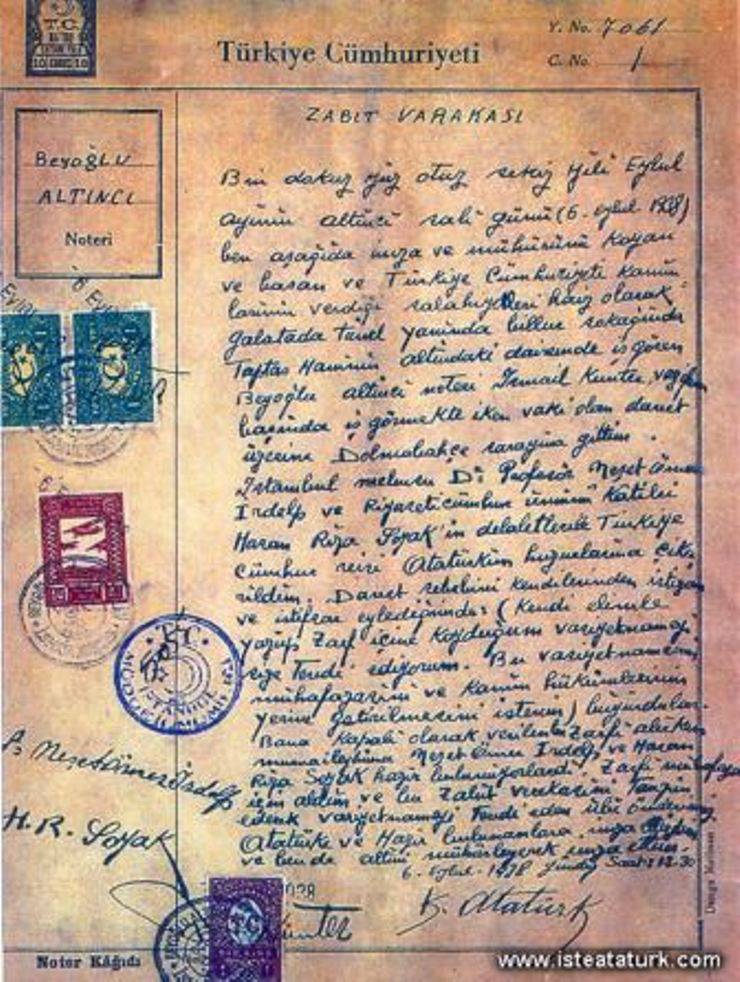 T.C.
Türkiye Cümhuriyeti
Y. No. 7061
C. No. 1
Beyoğlu
ALTINCI
Noteri
ZABIT VARAKASI
Bin dokuz yüz otuz sekiz yılı Eylul
ayının altıncı salı günü (6. eylul 1938)
ben aşağıda imza ve mühürünü koyan
ve basan ve Türkiye Cümhuriyeti kanun
larının verdiği salahiyetleri haiz olarak
galatada tünel yanında billur sokağında
Taptas Hanının altındaki dairemde iş gören
Beyoğlu altıncı noteri İsmail Kunter, vazifem
başında iş görmekte iken vaki olan davet
üzerine Dolmabahçe sarayına gittim.
İstanbul mebusu Dr Profesör Neşet Ömer
İrdelp ve Riyaseticümhur umumi Katibi
Hasan Rıza Soyak'ın delaletlerile Türkiye
Cümhur reisi Atatürkün huzurlarına çıka
rıldım. Davet sebebini kendilerinden istizan
ve istifsar eylediğimde: (Kendi elimle
yazıp Zarf içine koyduğum vasiyetnameyi
size Tevdi ediyorum. Bu vasiyetnamenin
muhafazasını ve kanun hükümlerinin
yerine getirilmesini isterim) buyurdular.
Bana kapalı olarak verilen Zarfı alırken
mumaileyhima Neşet Ömer İrdelp ve Hasan
Rıza Soyak hazır bulunuyorlardı. Zarfı muhafaza
için aldım ve bu Zabıt varakasını Tanzim
ederek vasiyetnameyi Tevdi eden ulu önderimiz
Atatürke ve Hazır bulunanlara imza
ve ben de altını mühürleyerek imza ettim.
6. Eylul. 1938 Saat: 12.30
Neşet Ömer İrdelp
H. R. Soyak
Kunter
K. Atatürk
T.C.
Noter Kâğıdı
www.isteataturk.com